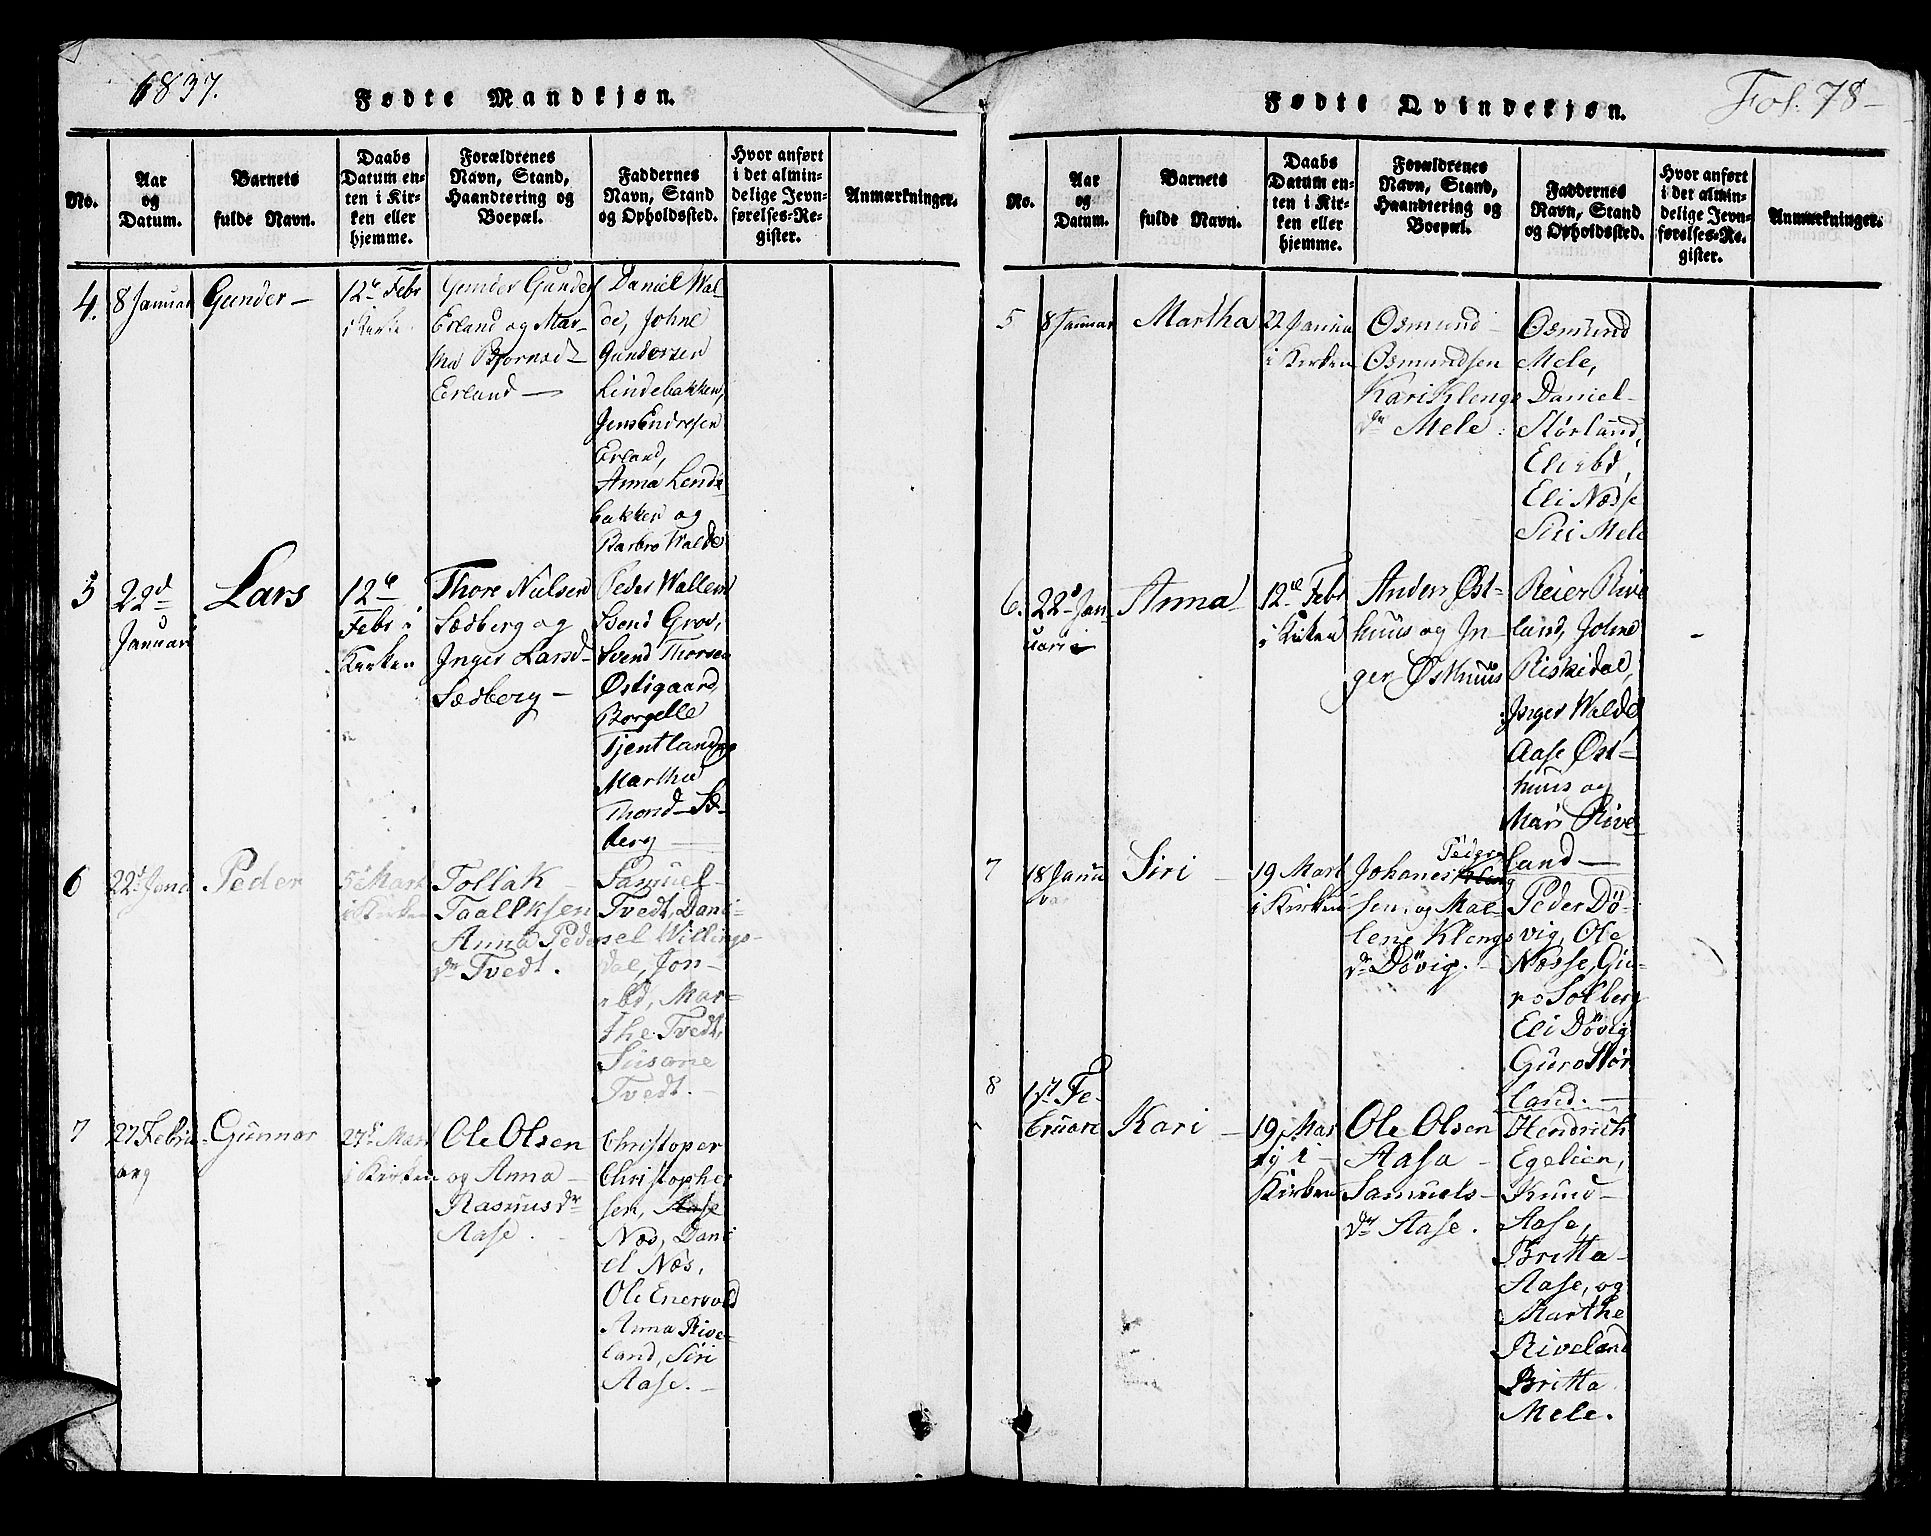 1837.
Fødte Mandkjøn.
No.
Aar
og
Datum.
Barnets
fulde Navn.
Daabs
Datum en-
ten i Kir-
ken eller
hjemme.
Forældrenes
Navn, Stand,
Haandtering og
Boepæl.
Faddernes
Navn, Stand
og Opholdssted.
Hvor anført
i det almin-
delige Jevn-
førelses-Re-
gister.
Anmærkninger.
4.
8 Januar
Gunder
12te Febr
i Kirke.
Gunder Gunders
Erland og Mar-
tha Bjørnsd
Erland
Daniel Wal-
de, Johne
Gundersen
Lindebakken,
Jens Endresen
Erland,
Anna Lende
bakken og
Barbro Walde
5
22d
Januar
Lars
12te
Febr i
Kirken
Thore Nielsen
Sædberg og
Inger Larsd
Sædberg
Peder Wallem
Svend Grov,
Svend Thorsen
Østigaard,
Borgelle
Tjentland og
Martha
Thorsd Sæ-
berg
6
22d Janu
Peder
5te Mart
i Kirken
Tollak
Taalksen
Anna Peders
dr Tvedt.
Samuel
Tvedt, Dani-
el Willings-
dal, Jon
ibd, Mar-
the Tvedt,
Susane
Tvedt.
7
27 Febru
arij
Gunnar
27de Mart
i Kirken
Ole Olsen
og Anna
Rasmusdr
Aase.
Christoper
Christophe
sen, Aase
Næs, Dani
el Næs,
Ole Enervold
Anna Rive-
land, Siri
Aase.
Fol. 78
Fødte Qvindekjøn.
No.
Aar
og
Datum.
Barnets
fulde Navn.
Daabs
Datum en-
ten i Kir-
ken eller
hjemme.
Forældrenes
Navn, Stand,
Haandtering og
Boepæl.
Faddernes
Navn, Stand
og Opholdssted.
Hvor anført
i det almin-
delige Jevn-
førelses-Re-
gister.
Anmærkninger.
5
8 Januar
Martha
22 Janua
i Kirken
Osmund
Osmundsen
Kari Klengs
dr Mele.
Osmund
Mele,
Daniel
Størland,
Eli ibd,
Eli Næsse
Siri Mele
6.
22d Jan
uarii
Anna
12te Febr
i Kirken
Anders Øst-
huus og In-
ger Østhuus
Reier Rive
land, Johne
Riskedal,
Inger Walde
Aase Øst-
huus og
Mari Rive
land
7
18 Janu
var
Siri
19 Mart
i Kirken
Johanes Peder
sen, og Mal-
lene Klengs
dr Døvig.
Peder Dø-
vig, Ole
Næsse, Gu-
ro Solberg
Eli Døvig
Guro Stør
land.
8
1st Fe-
bruari
Kari
19 Mar
tij i
Kirken
Ole Olsen
Aasa
Samuels
dr Aase.
Hendrich
Egelien,
Knud
Aase,
Britta
Aase, og
Marthe
Riveland
Britta
Mele.